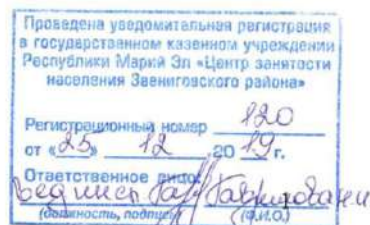 Проведена уведомительная регистрация
в государственном казенном учреждении
Республики Марий Эл «Центр занятости
населения Звениговского района»
Регистрационный номер 120
от «25» 12 20 19 г.
Ответственное лицо
(должность, подпись) (Ф.И.О.)